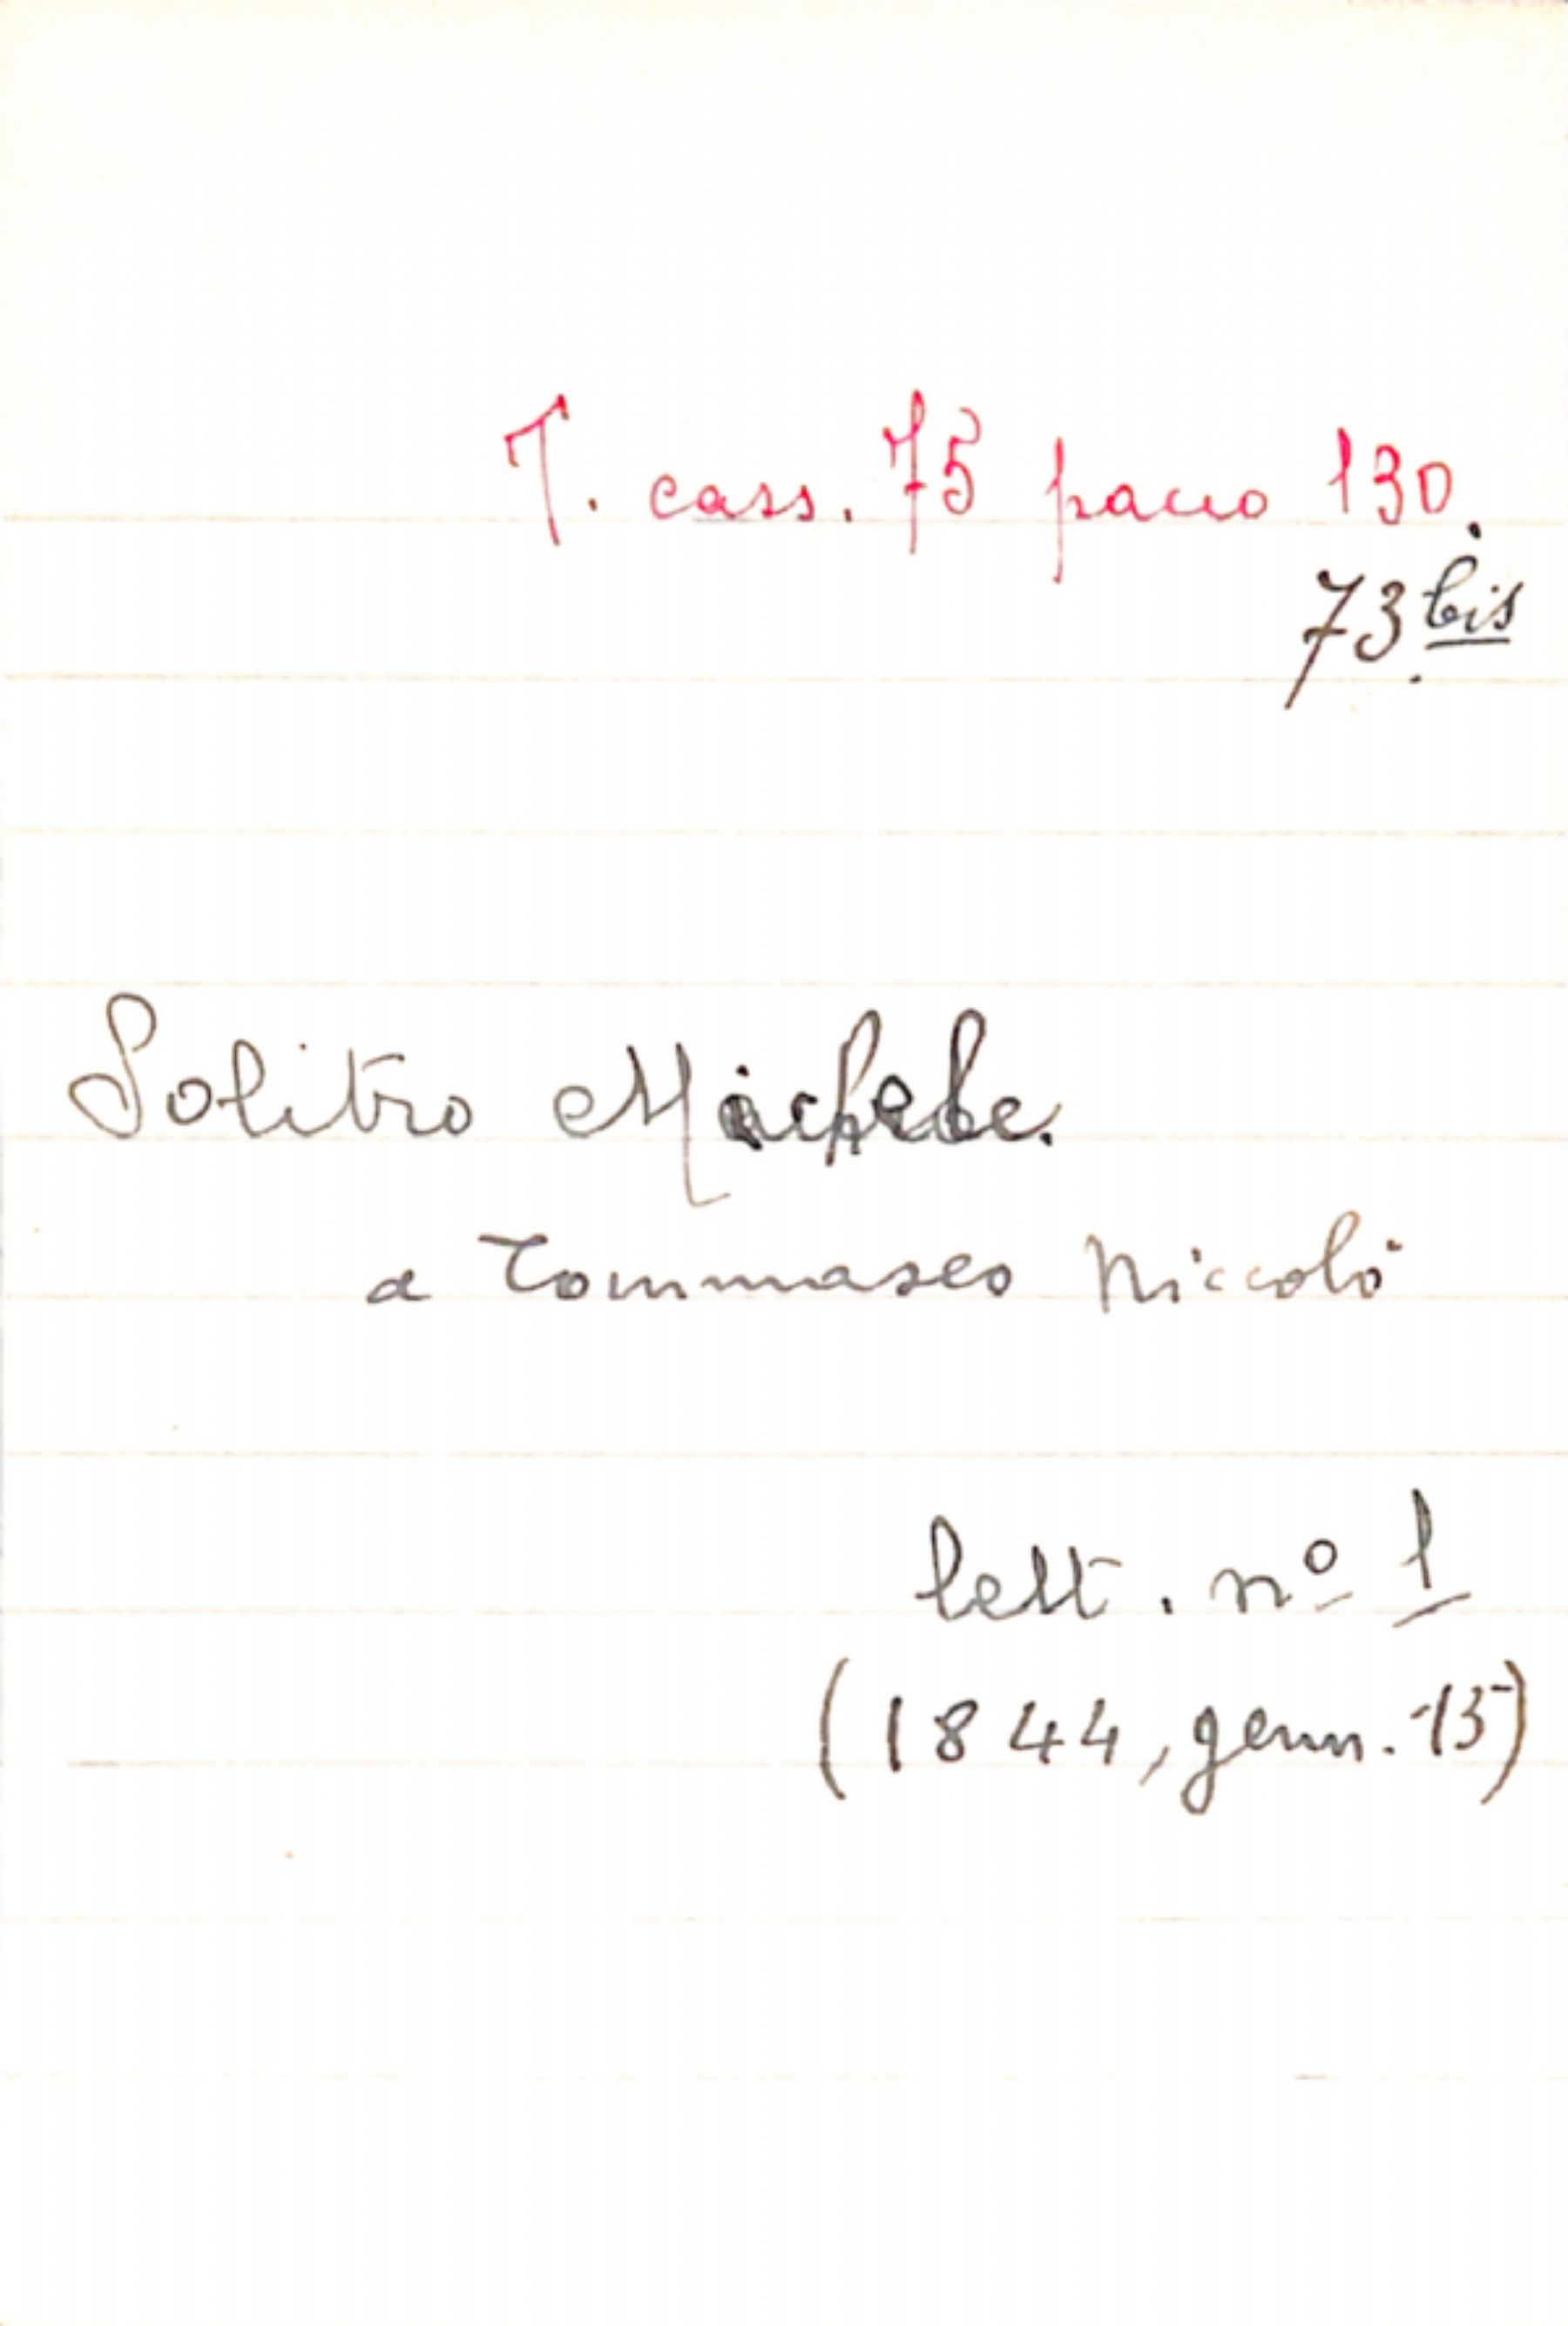 T. cass. 75 pacco 130.
73 bis
Solitro Michele.
a Tommaseo Niccolò
lett. nº 1
(1844, genn. 15)